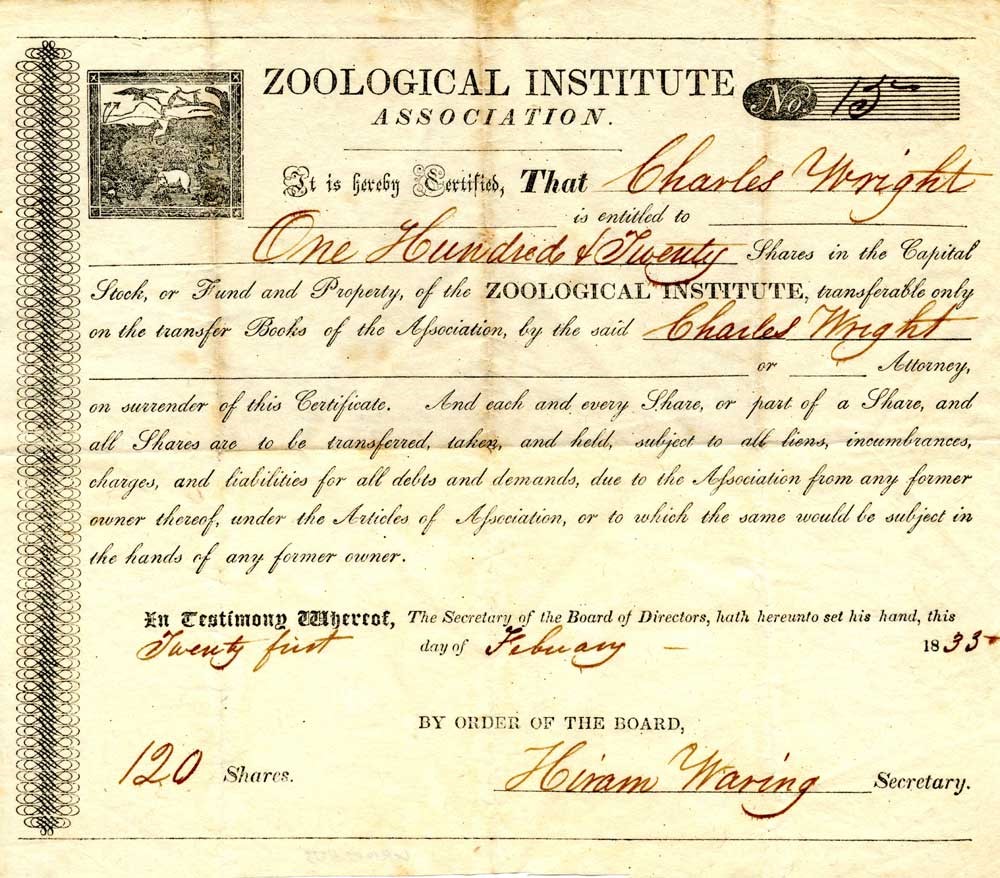 ZOOLOGICAL INSTITUTE
ASSOCIATION.
No 15
It is hereby Certified, That Charles Wright
is entitled to
One Hundred & Twenty Shares in the Capital
Stock, or Fund and Property, of the ZOOLOGICAL INSTITUTE, transferable only
on the transfer Books of the Aſsociation, by the said Charles Wright
or Attorney,
on surrender of this Certificate. And each and every Share, or part of a Share, and
all Shares are to be transferred, taken, and held, subject to all liens, incumbrances,
charges, and liabilities for all debts and demands, due to the Aſsociation from any former
owner thereof, under the Articles of Aſsociation, or to which the same would be subject in
the hands of any former owner.
In Testimony Whereof, The Secretary of the Board of Directors, hath hereunto set his hand, this
Twenty first day of February 1835
BY ORDER OF THE BOARD,
120 Shares. Hiram Waring Secretary.